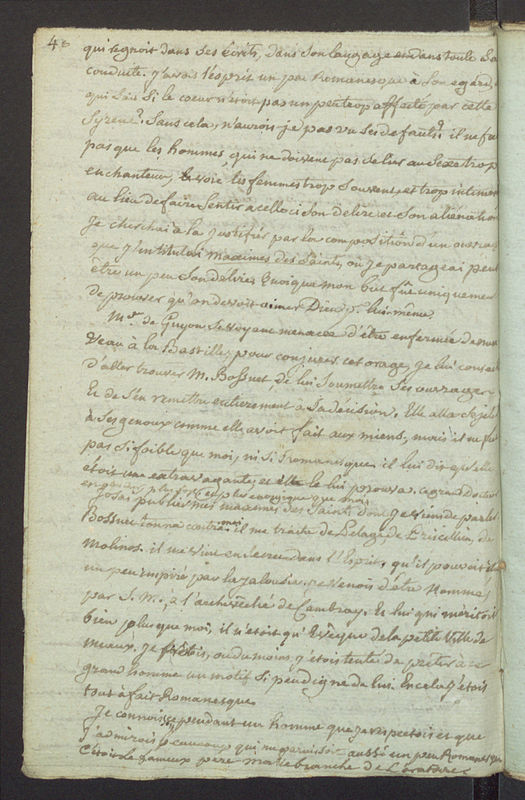 48
qui regnoit dans ses écrits, dans son langage et dans toute sa
conduite. j'avais l'esprit un peu Romanesque à son egard,
qui sais si le coeur n'etoit pas un peu trop affecté par cette
Syrene. Sans cela, n'aurois-je pas vu ses defauts? il ne fau
pas que les hommes, qui ne doivent pas de leur au Sexe trop
enchanteur, voie les femmes trop souvent, et trop intimem
au lieu de faire sentir à celle ci son delire et son alienation
Je cherchai à la justifier par la composition d'un ouvrag
que j'intitulai maximes des Saints, où je partageai peut
être un peu son delire, quoique mon but fût uniquemen
de prouver qu'on devoit aimer Dieu p. lui même.
Me. de Guyon se voyant menacée d'être enfermée de nou
veau à la Bastille, pour conjurer cet orage, je lui conse
d'aller trouver M. Bossuet, de lui soumettre ses ouvrages
Et de s'en remettre entierement à sa décision. Elle alla se jet
à ses genoux comme elle avoit fait aux miens, mais il ne fu
pas si foible que moi, ni si Romanesque. il lui dit qu'elle
étoit une extravagante, et le lui prouva. ce grand Docteur
en plus fort et plus energique que moi
j'osai publier mes maximes des Saints dont je viens de parler
Bossuet tonna contre moi. il me traita de Pelage de Priscillien, de
Molinos. il me vint en secret dans l'Esprit, qu'il pouvoit être
un peu inspiré par la jalousie. je venois d'être nommé,
par S. M., à l'archevêché de Cambray. Et lui qui méritoit
bien plus que moi, il n'etoit qu'Evêque de la petite Ville de
Meaux. je prêtois, ou du moins, j'etois tenté de prêter à ce
grand homme un motif si peu digne de lui. En cela j'étois
tout à fait Romanesque.
Je connoissois cependant un homme que je respectois et que
j'admirois beaucoup qui me paroissoit aussi un peu Romanesque
c'étoit le fameux pere Mallebranche de l'oratoire